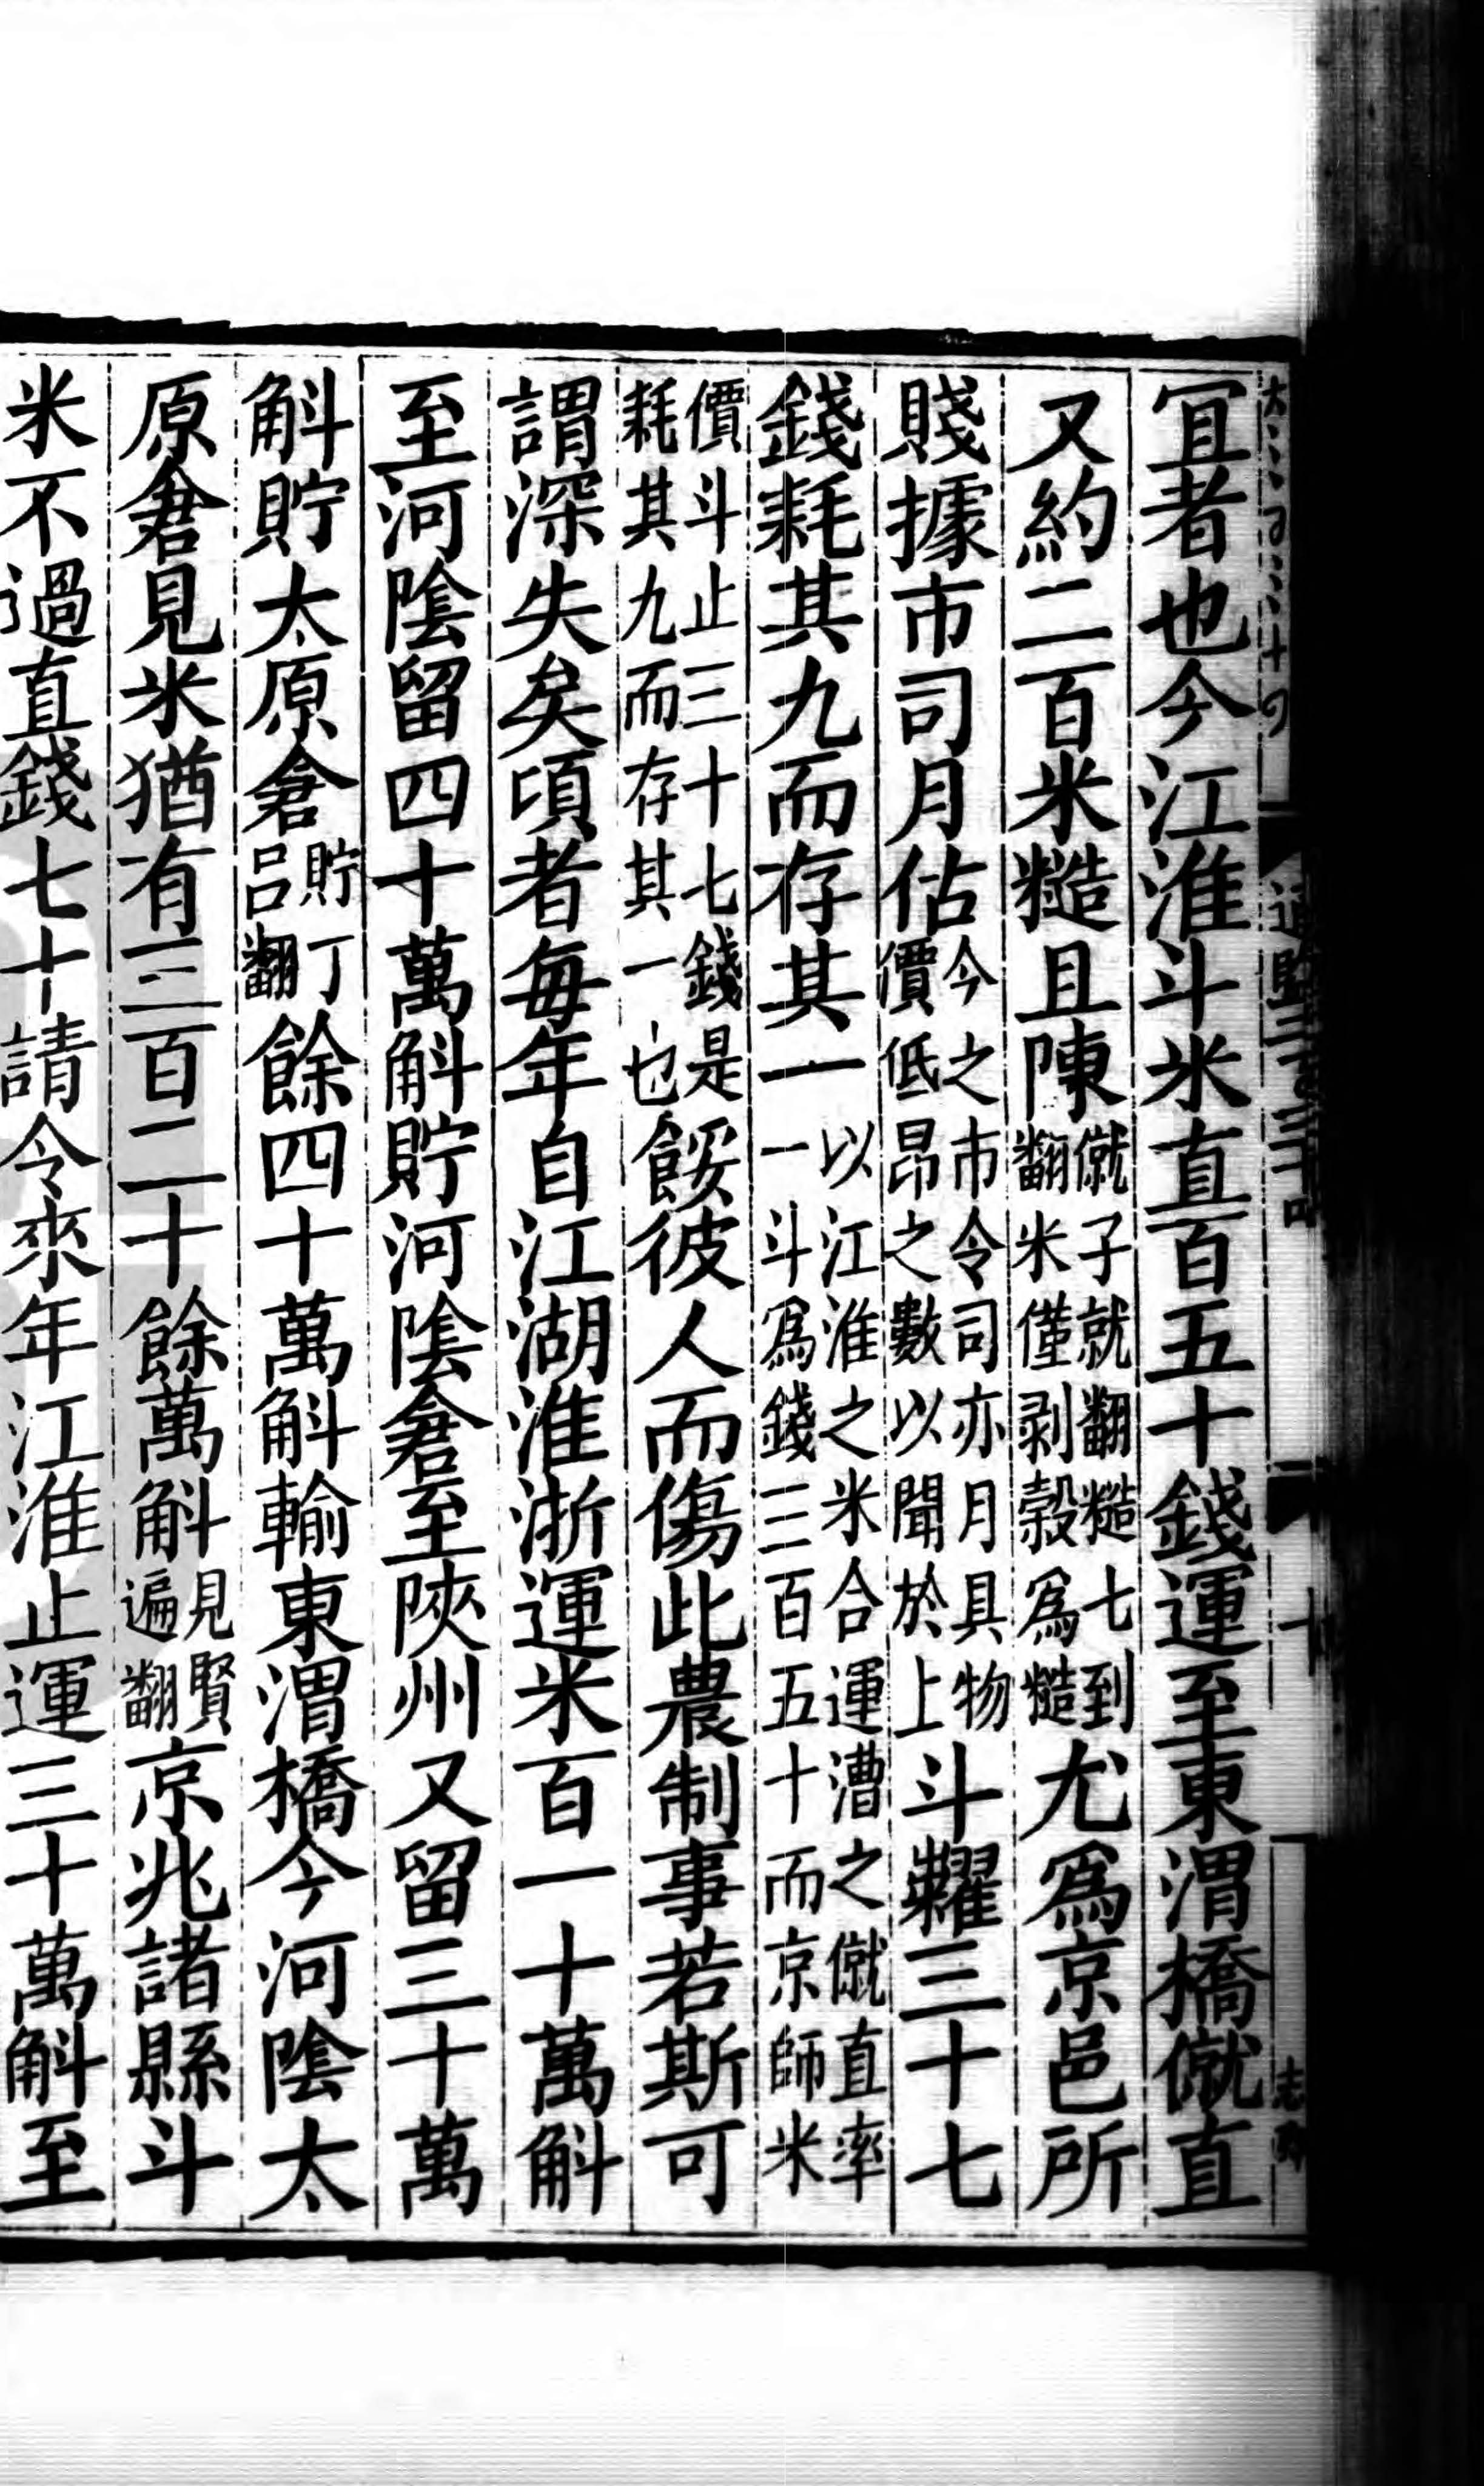 冝者也今江淮斗米直百五十錢運至東渭橋僦直
又約二百米糙且陳僦子就翻糙七到翻米僅剥糓爲糙尤爲京邑所
賤據市司月估今之市令司亦月具物價低昂之數以聞於上斗糶三十七
錢耗其九而存其一以江淮之米合運漕之僦直率一斗爲錢三百五十而京師米
價斗止三十七錢是耗其九而存其一也餒彼人而傷此農制事若斯可
謂深失矣頃者每年自江湖淮浙運米百一十萬斛
至河陰留四十萬斛貯河陰倉至陝州又留三十萬
斛貯太原倉貯丁吕翻餘四十萬斛輸東渭橋今河陰太
原倉見米猶有三百二十餘萬斛見賢遍翻京兆諸縣斗
米不過直錢七十請令來年江淮止運三十萬斛至